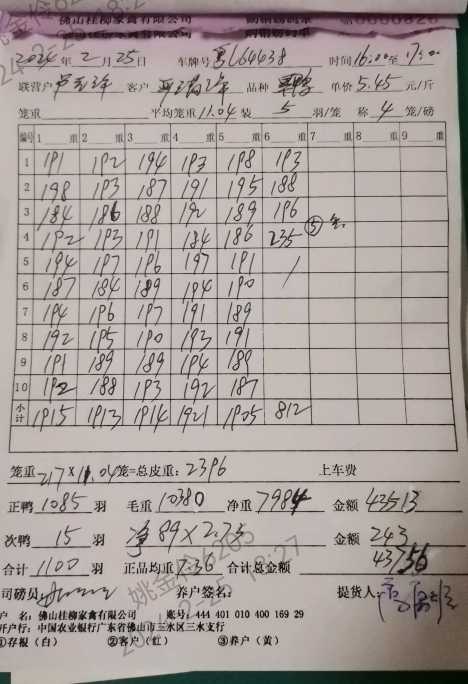 佛山桂柳家禽有限公司
2024年2月25日 车牌号 L64438 时间16:00至17:00
联营户 客户 品种 单价5.45元/斤
笼重 平均笼重11.04 装5羽/笼 称4笼/磅
编号 1 重 2 重 3 重 4 重 5 重 6 重 7 重 8 重 9 重
1 191 192 194 193 198 193
2 198 193 187 191 195 188
3 184 186 188 192 189 196
4 192 193 191 184 186 235 ⑤
5 194 197 196 197 191 /
6 187 184 189 194 190
7 194 196 197 191 189
8 192 195 190 193 191
9 191 189 189 194 189
10 192 188 193 192 187
小计 1915 1913 1914 1921 1905 812
笼重217×11.04笼=总皮重:2396 上车费
正鸭1085羽 毛重10380 净重7984 金额43513
次鸭15羽 净89×2.73 金额243
合计1100羽 正品均重7.36 合计总金额43756
司磅员 养户签名: 提货人:
户 名: 佛山桂柳家禽有限公司 账号:444 401 010 400 169 29
开户行: 中国农业银行广东省佛山市三水区三水支行
①存根(白) ②客户(红) ③养户(黄)